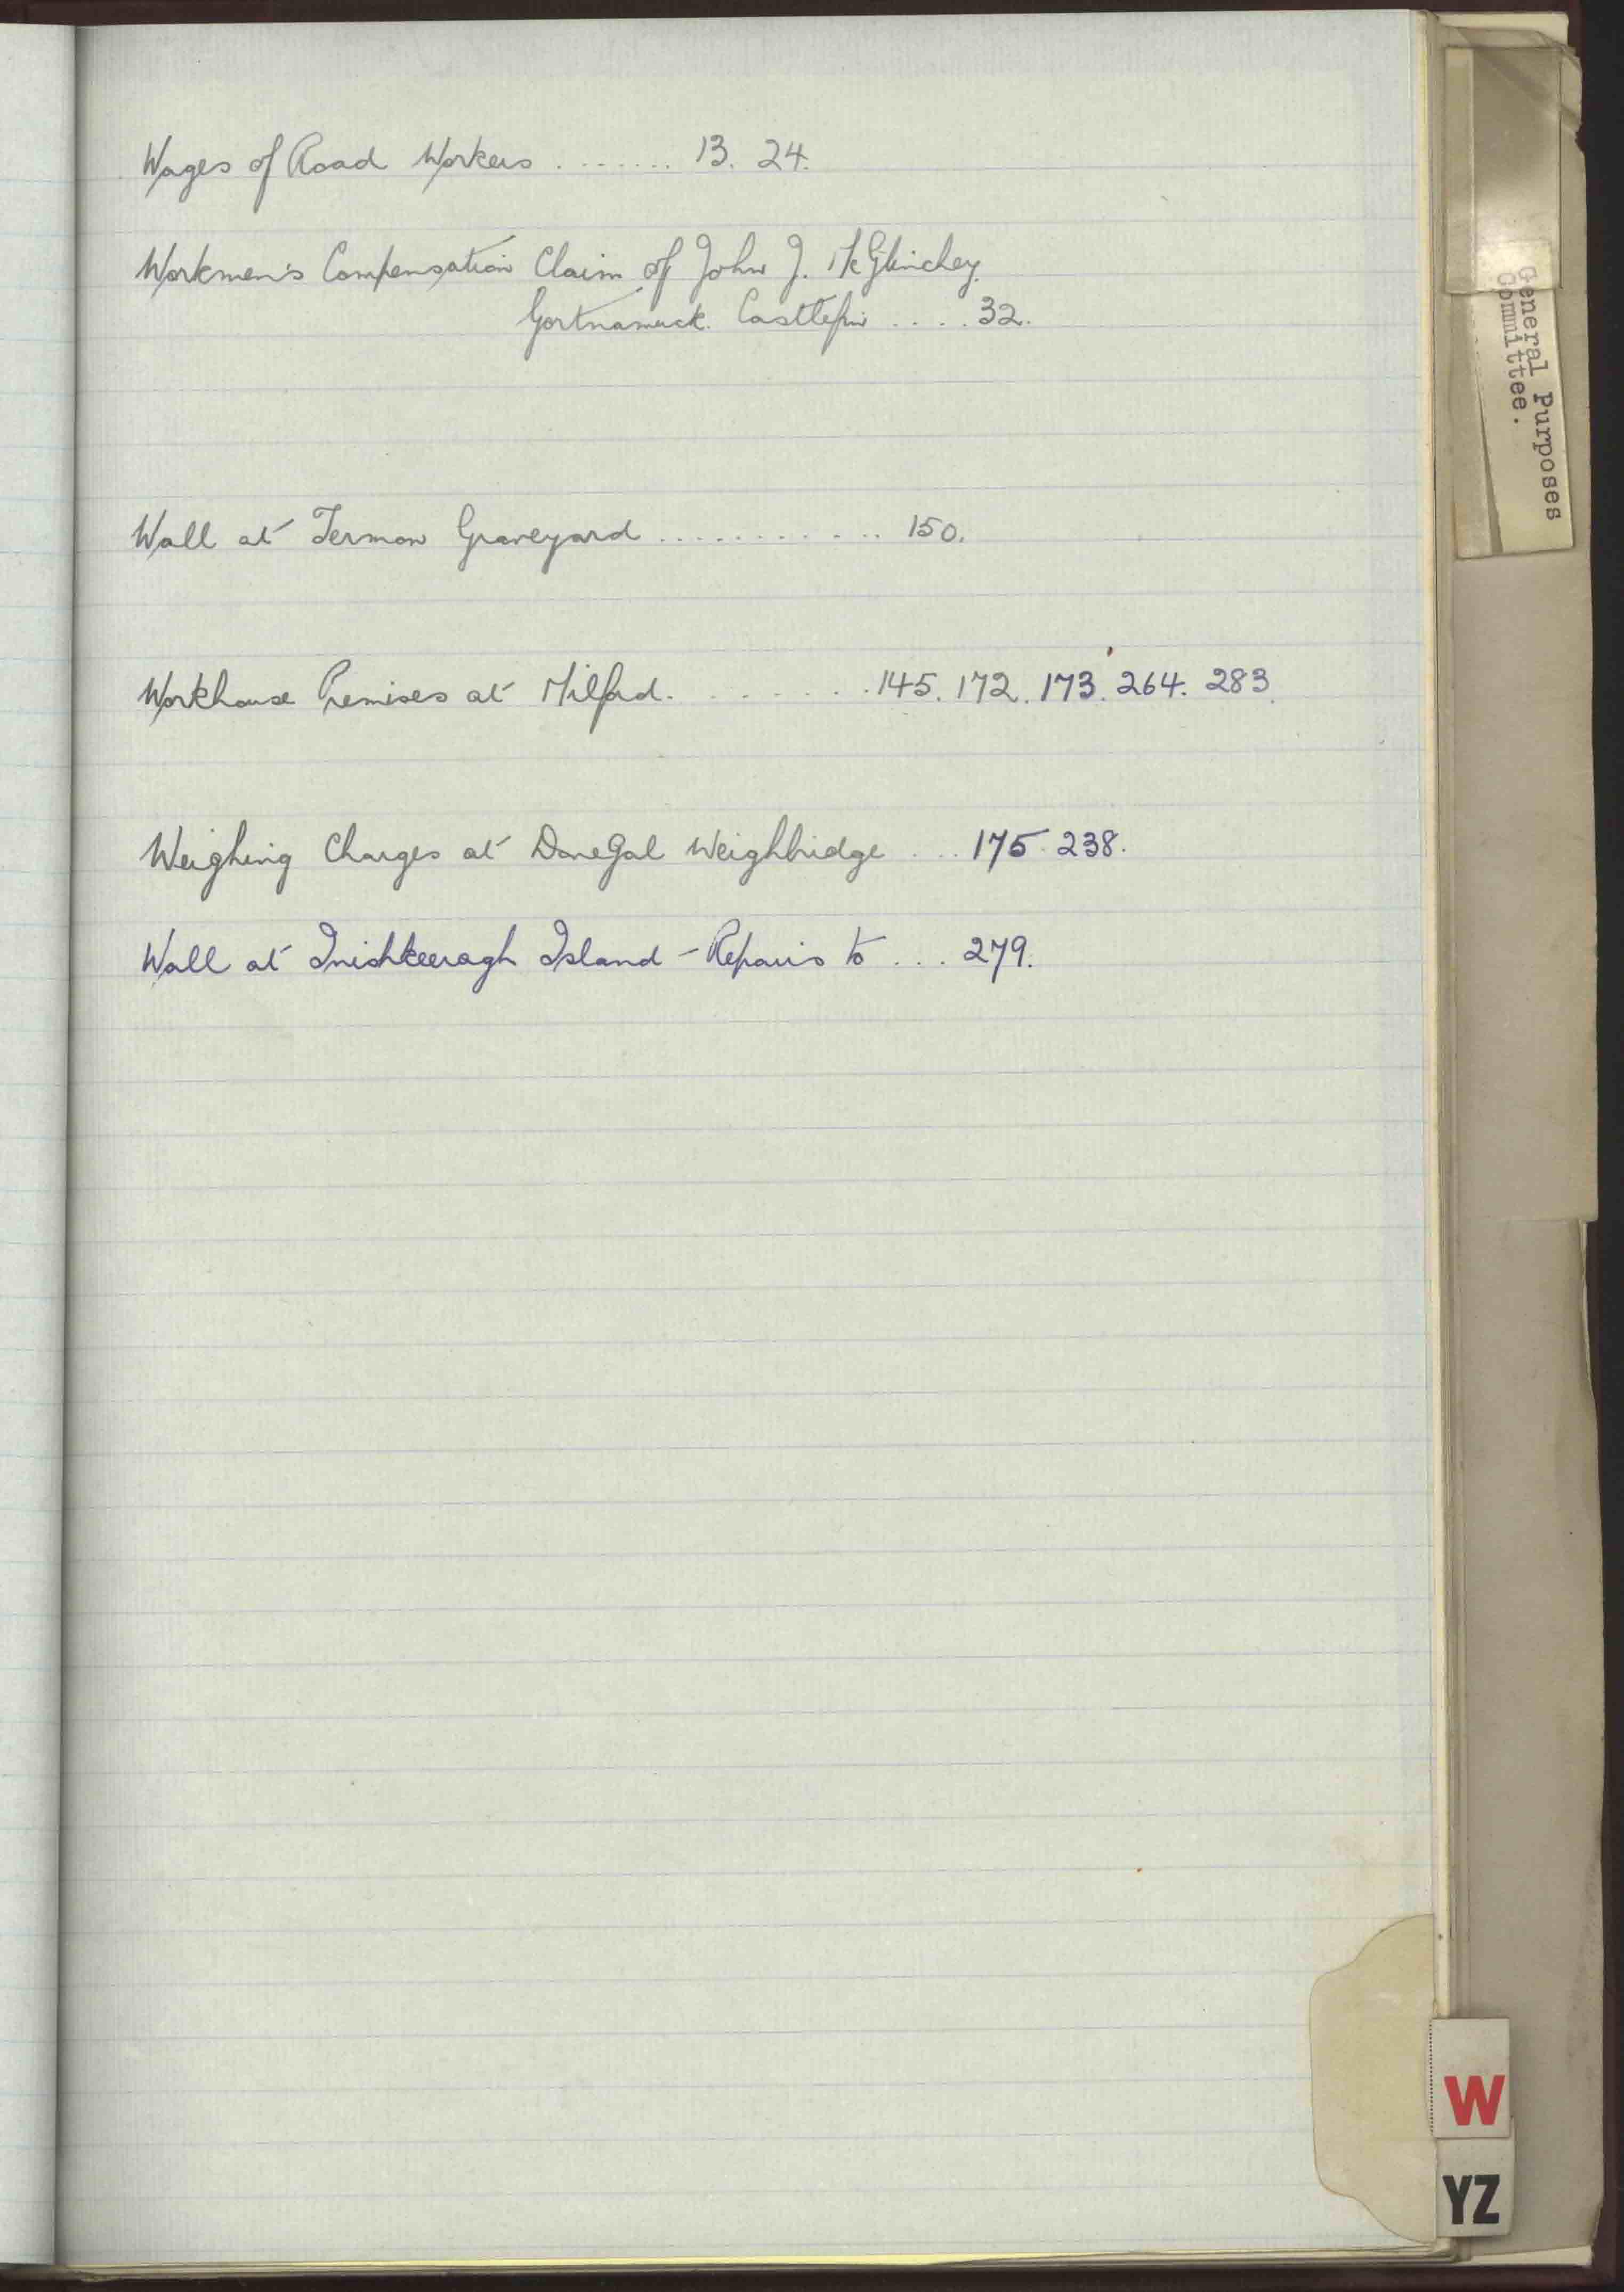 Wages of Road Workers ........ 13. 24.
Workmen's Compensation Claim of John J. McGlinchey.
Gortnamuck. Castlefin .... 32.
Wall at Termon Graveyard ............ 150.
Workhouse Premises at Milford. ....... 145. 172. 173. 264. 283.
Weighing Charges at Donegal Weighbridge .... 175. 238.
Wall at Inishkeeragh Island - Repairs to ... 279.
General Purposes
Committee.
W
YZ